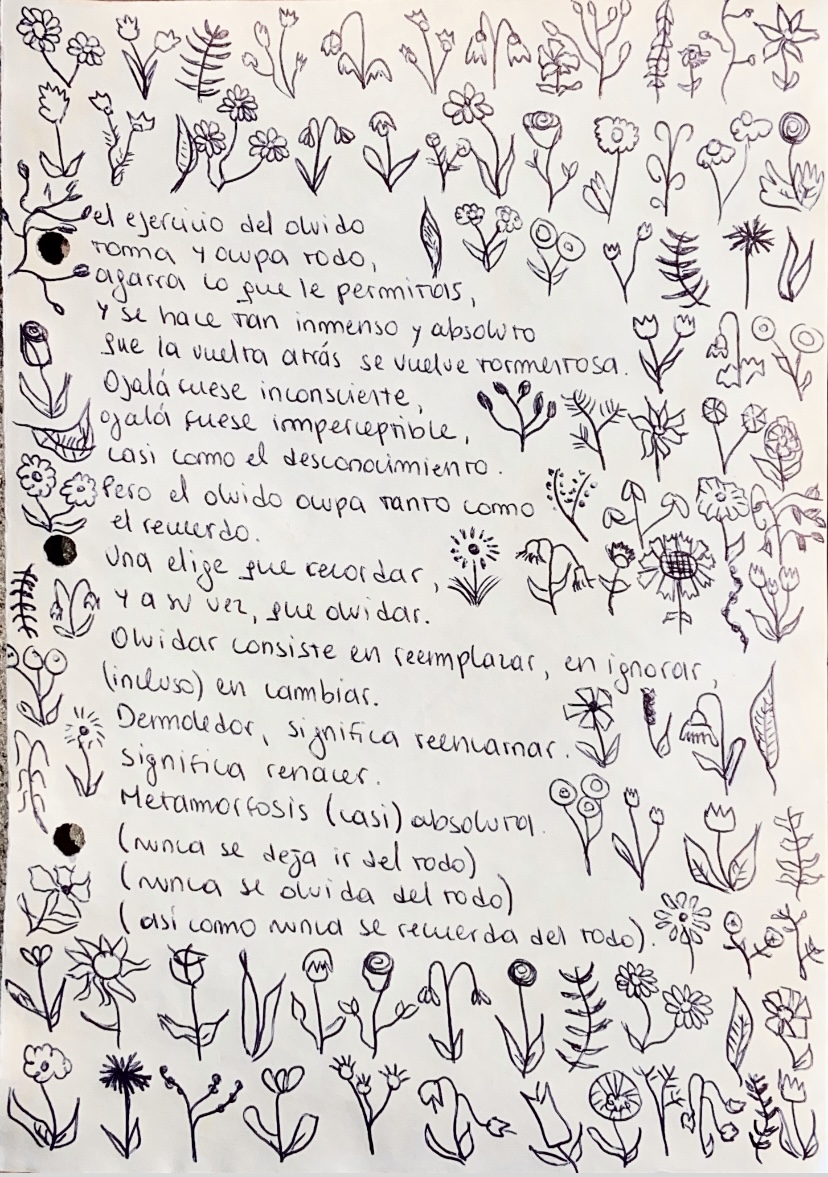 el ejercicio del olvido
toma y ocupa todo,
agarra lo que le permitas,
y se hace tan inmenso y absoluto
que la vuelta atrás se vuelve tormentosa.
Ojalá fuese inconsciente,
ojalá fuese imperceptible,
casi como el desconocimiento.
Pero el olvido ocupa tanto como
el recuerdo.
Una elige que recordar,
y a su vez, que olvidar.
Olvidar consiste en reemplazar, en ignorar,
(incluso) en cambiar.
Demoledor, significa reencarnar.
significa renacer.
Metamorfosis (casi) absoluta.
(nunca se deja ir del todo)
(nunca se olvida del todo)
(así como nunca se recuerda del todo).